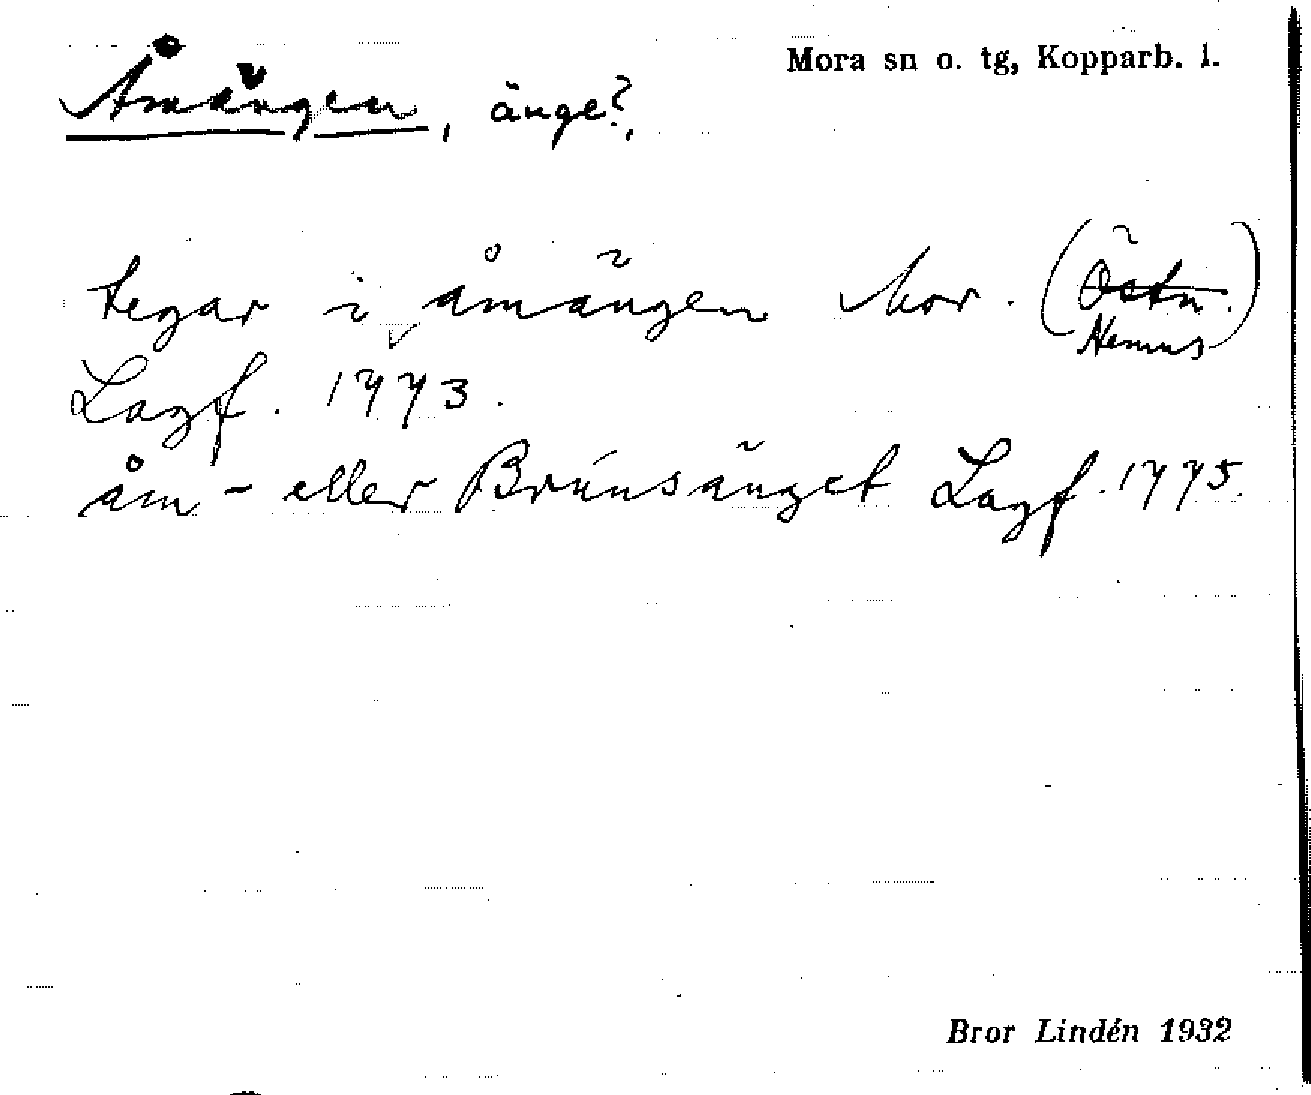 Mora sn o. tg, Kopparb. l.
Åmängen, änge?,
tegar i åmängen Mor. (Östn.)
Nemus
Lagf. 1773.
åm- eller Brúnsänget Lagf. 1775.
Bror Lindén 1932